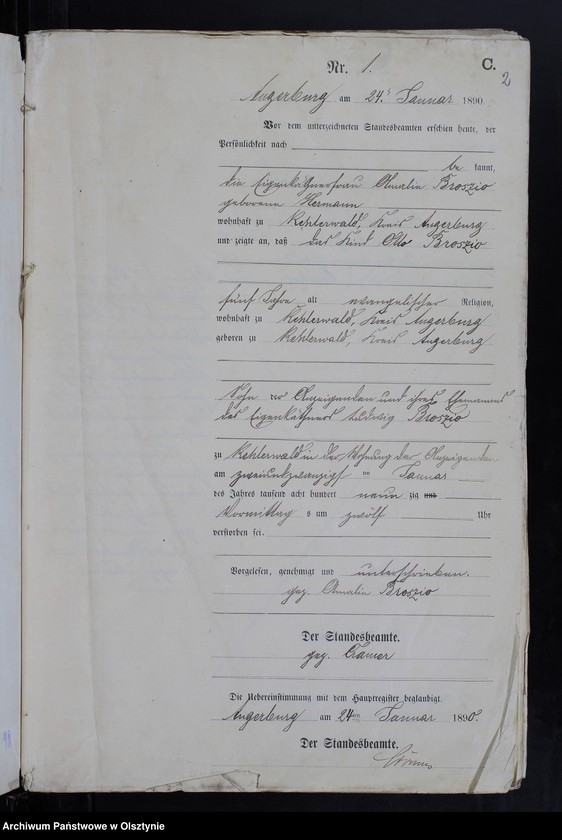 Nr. 1.
C.
2
Angerburg am 24. Januar 1890
Vor dem unterzeichneten Standesbeamten erschien heute, der
Persönlichkeit nach
be kannt,
die Eigenkäthnerfrau Amalie Broszio
geborene Hermann
wohnhaft zu Kehlerwald, Kreis Angerburg
und zeigte an, daß das Kind Otto Broszio
fünf Jahre alt evangelischer Religion,
wohnhaft zu Kehlerwald, Kreis Angerburg
geboren zu Kehlerwald, Kreis Angerburg
Sohn der Anzeigenden und ihres Ehemannes
des Eigenkäthners Ludwig Broszio
zu Kehlerwald in der Wohnung der Anzeigenden
am zweiundzwanzigsten Januar
des Jahres tausend acht hundert neun zig und
Vormittag s um zwölf Uhr
verstorben sei.
Vorgelesen, genehmigt und unterschrieben.
gez. Amalie Broszio
Der Standesbeamte.
gez. Cramer
Die Uebereinstimmung mit dem Hauptregister beglaubigt
Angerburg am 24ten Januar 1890.
Der Standesbeamte.
Archiwum Państwowe w Olsztynie